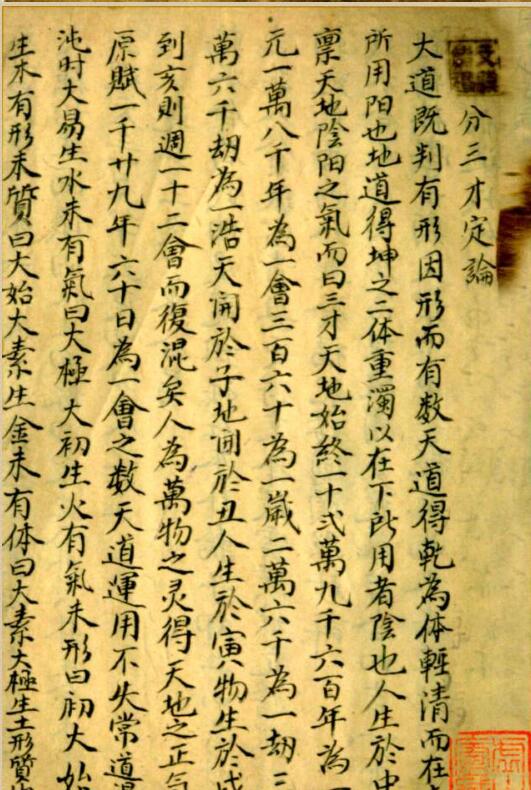 分三才定論
大道既判有形因形而有数天道得乾為体輕清而在
所用阳也地道得坤之二体重濁以在下所用者陰也人生於中
禀天地陰阳之氣而曰三才天地始終一十弍萬九千六百年為一
元一萬八千年為一會三百六十為一歲二萬六千為一劫三
萬六千劫為一浩天開於子地闢於丑人生於寅物生於戌
到亥則週一十二會而復混矣人為萬物之灵得天地之正氣
原賦一千廿九年六十日為一會之数天道運用不失常道混
沌时大易生水未有氣曰大極大初生火有氣未形曰初大始
生木有形未質曰大始大素生金未有体曰大素大極生土形質